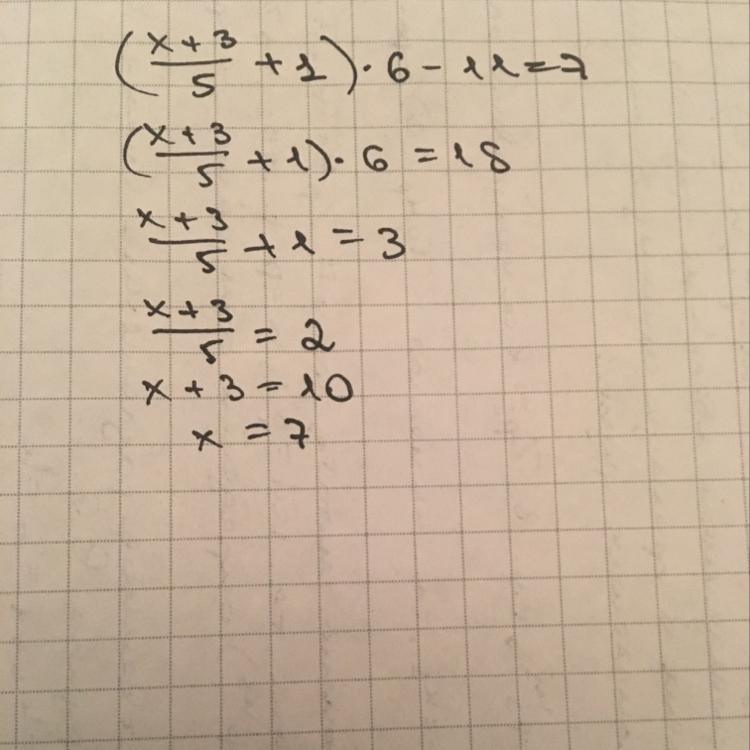 (x+3/5 + 1) · 6 - 11 = 7
(x+3/5 + 1) · 6 = 18
x+3/5 + 1 = 3
x+3/5 = 2
x + 3 = 10
x = 7